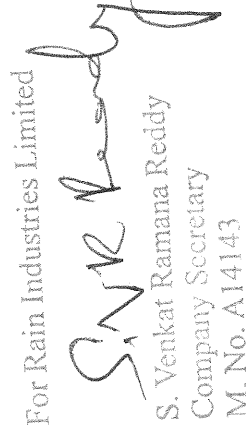 For Rain Industries Limited
S.V.R Reddy
S. Venkat Ramana Reddy
Company Secretary
M. No. A14143